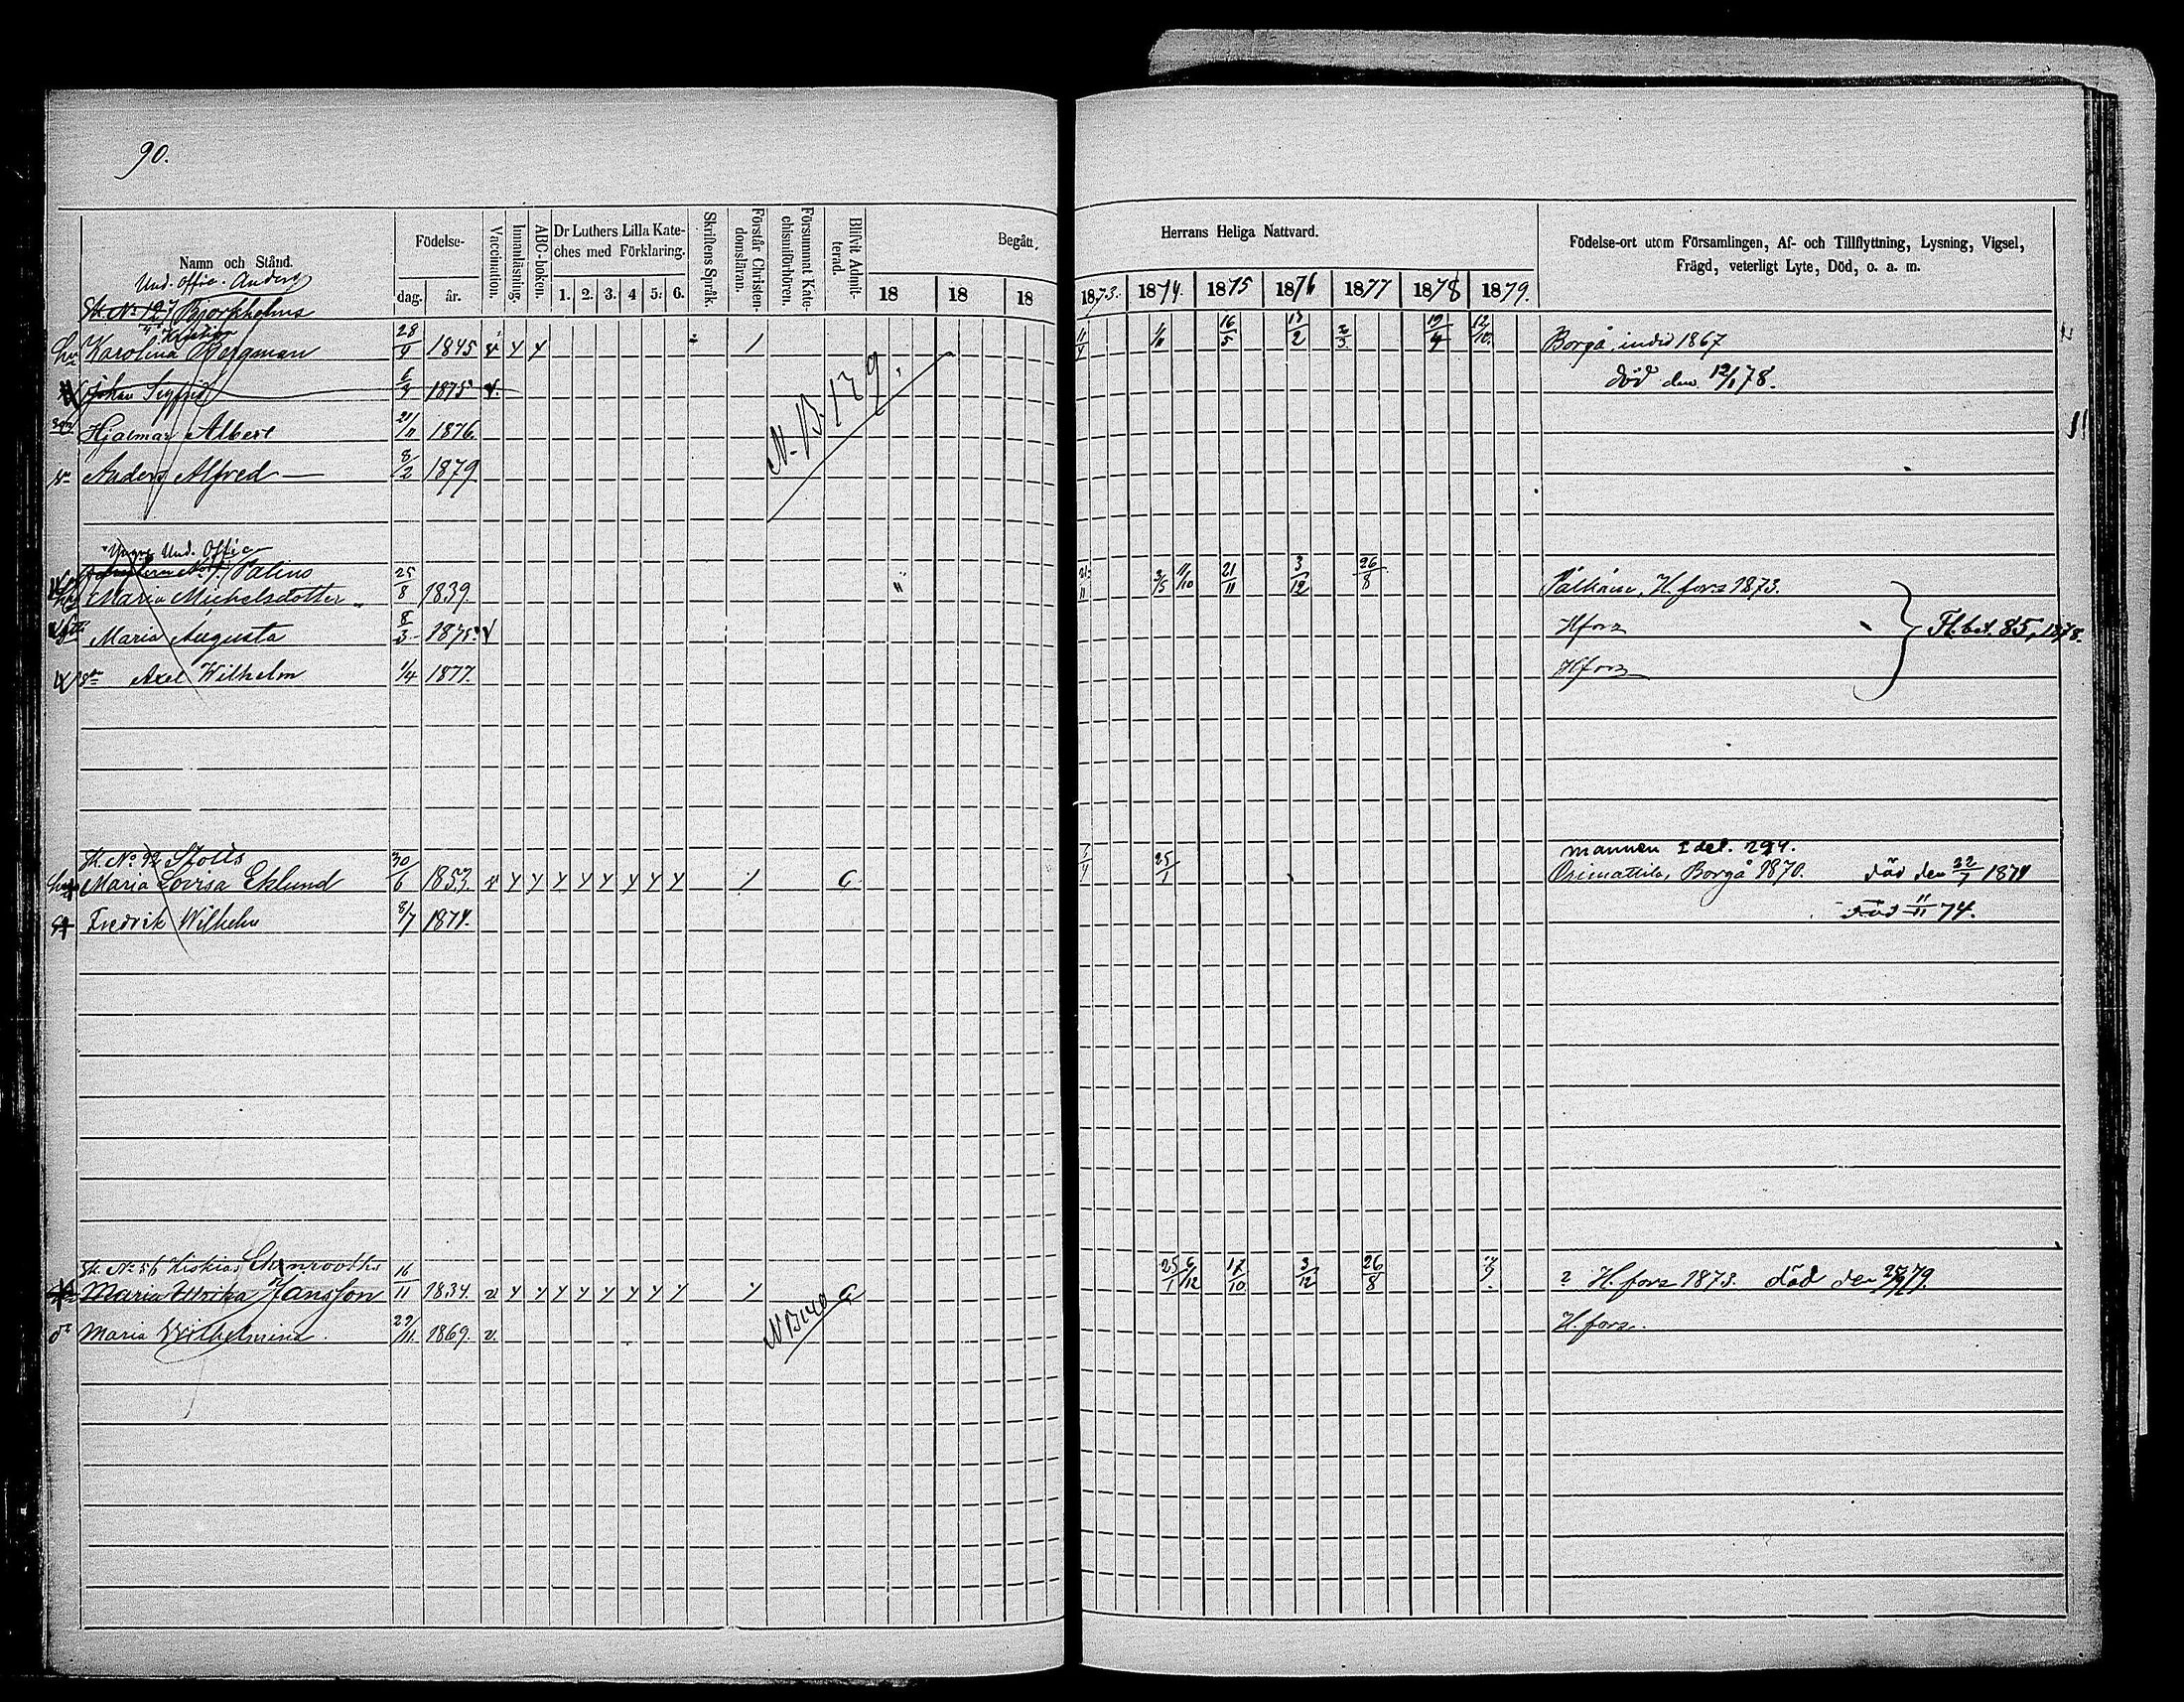 90.
Namn och Stånd.
Födelse-
dag. år.
Vaccination.
Innanläsning.
ABC-boken.
Dr Luthers Lilla Kate-
ches med Förklaring.
1. 2. 3. 4 5. 6.
Skriftens Språk.
Förstår Christen-
domsläran.
Försummat Kate-
chismiförhören.
Blifvit Admit-
terad.
Begått.
18 18 18
Herrans Heliga Nattvard.
1873. 1874. 1875 1876 1877 1878 1879.
Födelse-ort utom Församlingen, Af- och Tillflyttning, Lysning, Vigsel,
Frägd, veterligt Lyte, Död, o. a. m.
Und. offic. Anders
Sk. No 127 Björkholms
Karolina Bergman 28/4 1845 v y y 16/5 13/2 2/3 19/4 12/10. Borgå, 1867
Johan Sigfrid 6/3 1875 v. död den 12/1 78.
Hjalmar Albert 21/11 1876.
Anders Alfred 8/2 1879
N. B. 139.
Yngre Und. Offic
Palins
Maria Michelsdotter 25/8 1839. 3/5 11/10 21/11 3/12 26/8 Pälkäne, H.fors 1873.
Maria Augusta 8/3 1875. v H fors
Fl. bet. 85, 1878.
sn Axel Wilhelm 1/4 1877. H fors
Sk. No 92 Stolts
mannen I del. 294.
Maria Lovisa Eklund 30/6 1853. v y y y y y y y y / C 25/1 Orimattila, Borgå 1870. död den 22/7 1874
Fredrik Wilhelm 8/7 1874. död 11/11 74.
Sk. No 56 Kiskias
Maria Ulrika Jansson 16/11 1834. v y y y y y y y y 25/1 6/12 17/10 3/12 26/8 H. fors 1873. död den 25/9 79.
Maria Wilhelmina. 29/11 1869. v. H. fors.
N B 140